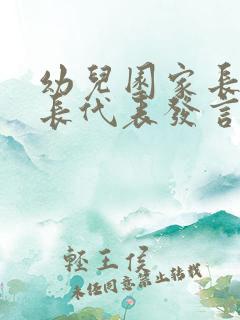 幼兒園家長
長代表發言
輕王侯
未經同意禁止轉載